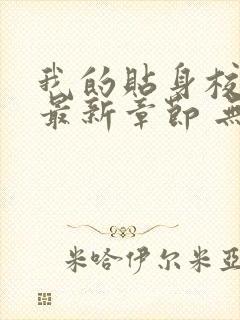 我的貼身校
最新章節 無
米哈伊尔米亞